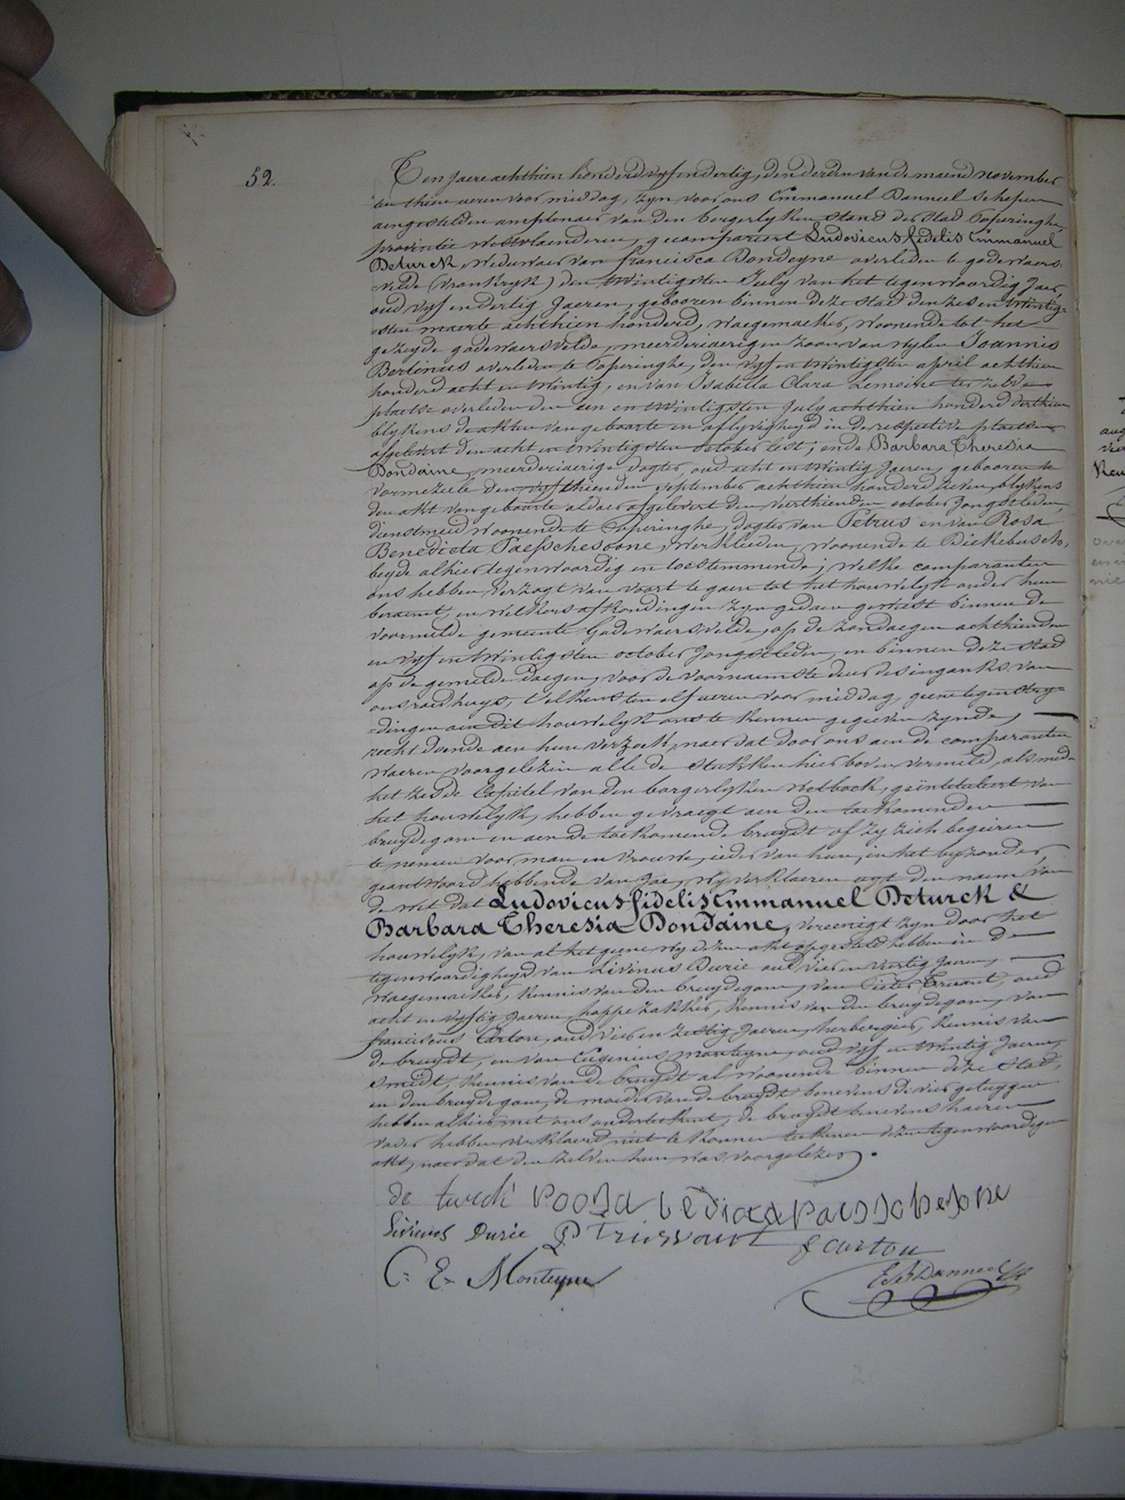 52.
Ten jaere achthien honderd vyf en dertig, den derden van de maend november
ten thien ueren voor middag, zyn voor ons Emmanuel Danneel schepen
aengestelden amptenaer van den borgerlyken stand der stad Poperinghe,
provintie Westvlaenderen, gecompareert Ludovicus fidelis Emmanuel
Deturck, weduwaer van francisca Dondeyne overleden te godewaers-
velde (vrankryk) den twintigsten July van het tegenwoordig Jaer,
oud vyf en dertig Jaeren, gebooren binnen deze stad den zes en twintig-
sten maerte achthien honderd, waegemaeker, woonende tot het
gezeyde godewaersvelde, meerderjaerigen zoon van wylen Joannis
Bertinus overleden te Poperinghe, den vyf en twintigsten april achthien
honderd acht en twintig, en van Isabella Clara Lemoine ter zelve
plaetse overleden den een en twintigsten July achthien honderd derthien
blykens de akten van geboorte en aflyvigheyd in de respective plaetsen
afgelevert den acht en twintigsten october lest; ende Barbara Theresia
Dondaine, meerderjaerige dogter, oud acht en twintig Jaeren, gebooren te
vormezeele den vyfthienden september achthien honderd zeven, blykens
den akt van geboorte aldaer afgelevert den veerthienden october jongstleden,
dienstmeid woonende te Poperinghe, dogter van Petrus en van Rosa
Benedicta Paesschesoone, werklieden, woonende te Dickebusch,
beyde alhier tegenwoordig en toestemmende; welke comparanten
ons hebben verzogt van voort te gaen tot het houwelyk onder hun
beraemt, en welkers afkondingen zyn gedaen geweest binnen de
voormelde gemeente Godewaersvelde, op de zondaegen achthienden
en vyf en twintigsten october jongstleden, en binnen deze stad
op de gemelde daegen, voor de voornaemste deur des ingangs van
ons raedhuys, telkens ten elf ueren voor middag, geene tegenstry-
dingen aen dit houwelyk ons te kennen gegeven zynde,
recht doende aen hun verzoek, naer dat door ons aen de comparanten
waeren voorgelezen alle de stukken hier boven vermeld, als mede
het zesde Capitel van den borgerlyken wetboek, geintituleert van
het houwelyk, hebben gevraegt aen den toekomenden
bruydegom en aen de toekomende bruydt of zy zich begeiren
te nemen voor man en vrouwe, ieder van hun, in het byzonder,
geantwoord hebbende van Jae, wy verklaeren uyt den naem van
de wet dat Ludovicus fidelis Emmanuel Deturck &
Barbara Theresia Dondaine, vereenigt zyn door het
houwelyk, van al het geene wy dezen akt opgesteld hebben in de
tegenwoordigheyd van Livinus Durie oud vier en veertig Jaeren,
waegemaeker, kennis van den bruydegom, van Pieter Truant, oud
acht en vyftig Jaeren, hoppezakker, kennis van den bruydegom, van
franciscus Carton, oud vier en zestig Jaeren, herbergier, kennis van
de bruydt, en van Eugenius monteyne, oud vyf en twintig Jaeren,
smidt, kennis van de bruydt al woonende binnen deze stad,
en den bruydegom, de moeder van de bruydt benevens de vier getuygen
hebben alhier met ons onderteekent, de bruydt benevens haeren
vader hebben verklaerd niet te konnen teekenen dezen tegenwoordigen
akt, naer dat den zelven hun was voorgelezen.
de turck
Livinus Durie
f carton
C: E. Monteyne